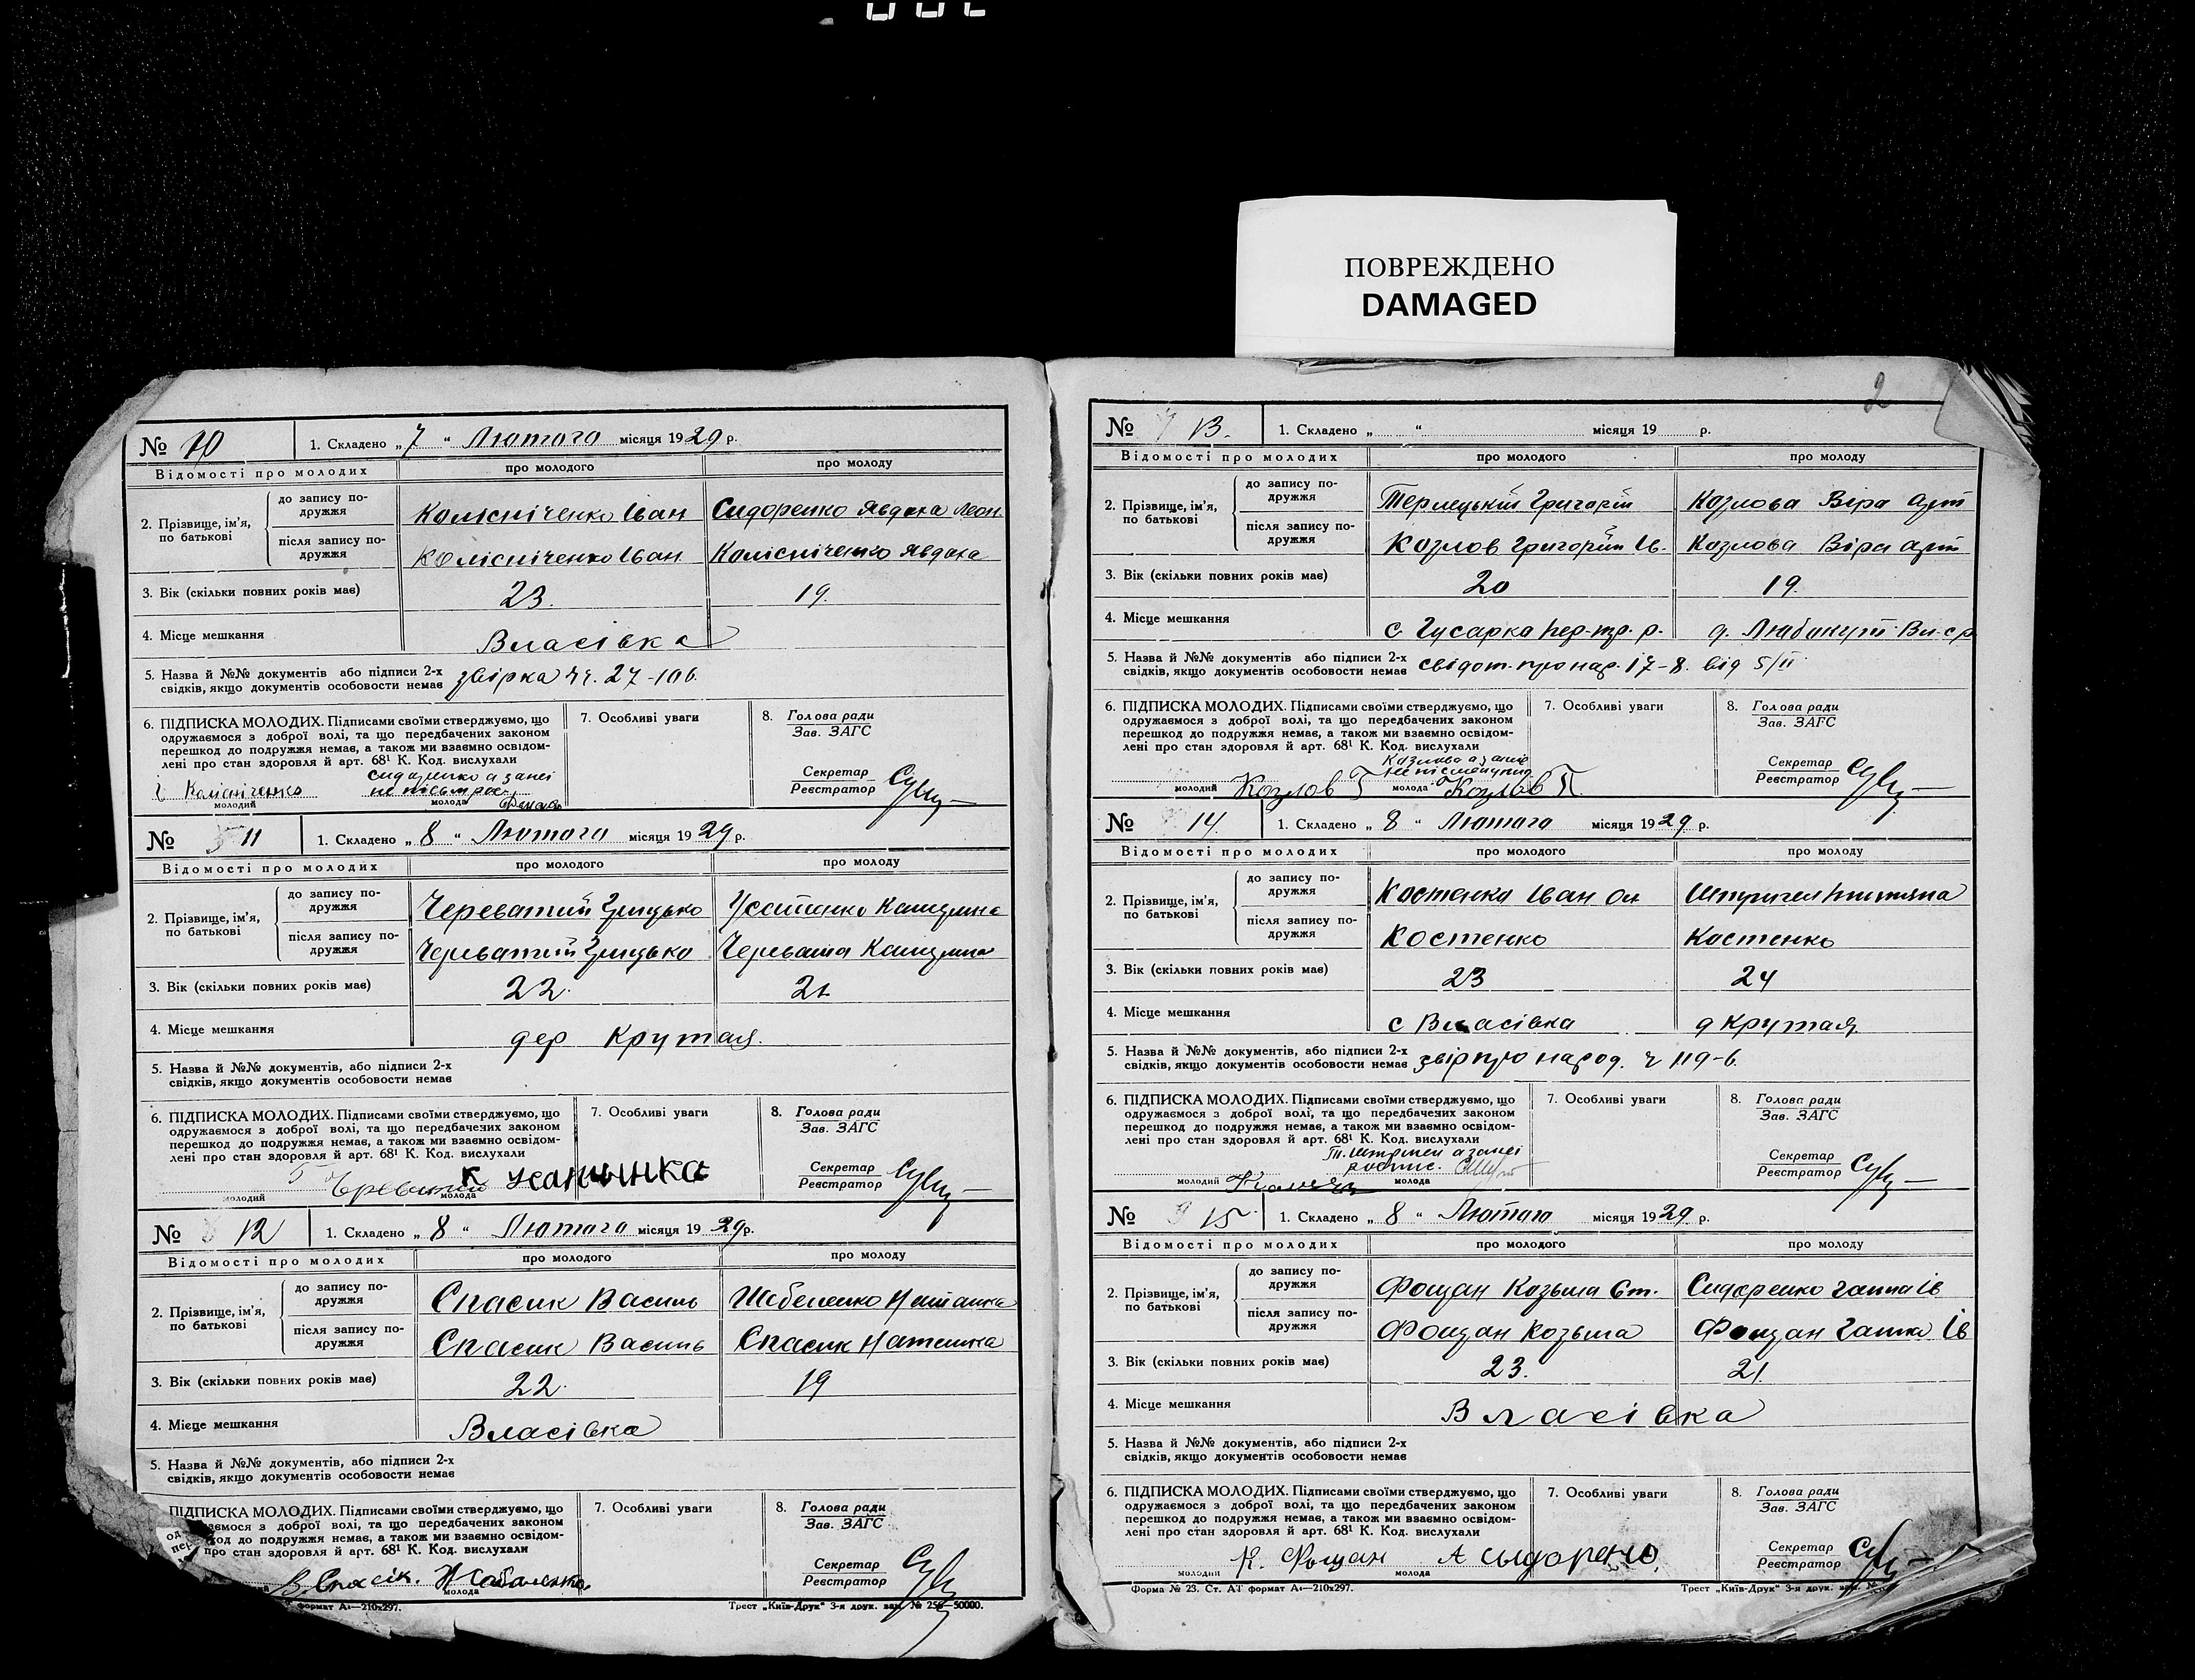 ПОВРЕЖДЕНО
DAMAGED
№ 10
1. Складено „ 7 “ Лютого місяця 1929 р.
Відомості про молодих про молодого про молоду
2. Прізвище, ім'я, по батькові
до запису по-дружжя Колісніченко Іван Сидоренко Явдоха Леон
після запису по-дружжя Колісніченко Іван Колісніченко Явдоха
3. Вік (скільки повних років має) 23. 19.
4. Місце мешкання Власівка
5. Назва й №№ документів або підписи 2-х
свідків, якщо документів особовости немає звірка чч. 27-106.
6. ПІДПИСКА МОЛОДИХ. Підписами своїми стверджуємо, що
одружаємося з доброї волі, та що передбачених законом
перешкод до подружжя немає, а також ми взаємно освідом-
лені про стан здоровля й арт. 68¹ К. Код. вислухали
Сидоренко а за неї
І Колісніченко
молодий молода
7. Особливі уваги
8. Голова ради
Зав. ЗАГС
Секретар
Реєстратор
№ 11
1. Складено „ 8 “ Лютого місяця 1929 р.
Відомості про молодих про молодого про молоду
2. Прізвище, ім'я, по батькові
до запису по-дружжя Череватий Грицько Усатенко Катерина
після запису по-дружжя Череватий Грицько Черевата Катерина
3. Вік (скільки повних років має) 22. 21
4. Місце мешкання дер Крутая.
5. Назва й №№ документів, або підписи 2-х
свідків, якщо документів особовости немає
6. ПІДПИСКА МОЛОДИХ. Підписами своїми стверджуємо, що
одружаємося з доброї волі, та що передбачених законом
перешкод до подружжя немає, а також ми взаємно освідом-
лені про стан здоровля й арт. 68¹ К. Код. вислухали
молодий молода
7. Особливі уваги
8. Голова ради
Зав. ЗАГС
Секретар
Реєстратор
№ 12
1. Складено „ 8 “ Лютого місяця 1929р.
Відомості про молодих про молодого про молоду
2. Прізвище, ім'я, по батькові
до запису по-дружжя Спасик Василь Шебеленко Наталка
після запису по-дружжя Спасик Василь Спасик Наталка
3. Вік (скільки повних років має) 22. 19
4. Місце мешкання Власівка
5. Назва й №№ документів, або підписи 2-х
свідків, якщо документів особовости немає
ПІДПИСКА МОЛОДИХ. Підписами своїми стверджуємо, що
од ємося з доброї волі, та що передбачених законом
пер код до подружжя немає, а також ми взаємно освідом-
про стан здоровля й арт. 68¹ К. Код. вислухали
В Спасік.
молода
7. Особливі уваги
8. Голова ради
Зав. ЗАГС
Секретар
Реєстратор
формат А₄—210х297.
Трест „Київ-Друк“ 3-я друк. зам. № 256—50000.
2
№ 13.
1. Складено „ “ місяця 19 р.
Відомості про молодих про молодого про молоду
2. Прізвище, ім'я, по батькові
до запису по-дружжя Терлецький Григорій Козлова Віра Арт
після запису по-дружжя Козлов Григорій Ів. Козлова Віра Арт
3. Вік (скільки повних років має) 20 19.
4. Місце мешкання с. Гусарка
5. Назва й №№ документів або підписи 2-х
свідків, якщо документів особовости немає свідот. про нар. 17-8. від 5/II
6. ПІДПИСКА МОЛОДИХ. Підписами своїми стверджуємо, що
одружаємося з доброї волі, та що передбачених законом
перешкод до подружжя немає, а також ми взаємно освідом-
лені про стан здоровля й арт. 68¹ К. Код. вислухали
Козлова а за неї
молодий Козлов Г молода Козлов П.
7. Особливі уваги
8. Голова ради
Зав. ЗАГС
Секретар
Реєстратор
№ 14.
1. Складено „ 8 “ Лютого місяця 1929. р.
Відомості про молодих про молодого про молоду
2. Прізвище, ім'я, по батькові
до запису по-дружжя Костенко Іван Ол
після запису по-дружжя Костенко Костенко
3. Вік (скільки повних років має) 23 24
4. Місце мешкання с Власівка д Крутая
5. Назва й №№ документів, або підписи 2-х
свідків, якщо документів особовости немає звір про народ. ч 119-б.
6. ПІДПИСКА МОЛОДИХ. Підписами своїми стверджуємо, що
одружаємося з доброї волі, та що передбачених законом
перешкод до подружжя немає, а також ми взаємно освідом-
лені про стан здоровля й арт. 68¹ К. Код. вислухали
а за неї
молодий молода
7. Особливі уваги
8. Голова ради
Зав. ЗАГС
Секретар
Реєстратор
№ 15
1. Складено „ 8 “ Лютого місяця 1929. р.
Відомості про молодих про молодого про молоду
2. Прізвище, ім'я, по батькові
до запису по-дружжя Фощан Козьма Єт. Сидоренко Ганна Ів
після запису по-дружжя Фощан Козьма Фощан Ганна Ів
3. Вік (скільки повних років має) 23. 21.
4. Місце мешкання Власівка
5. Назва й №№ документів, або підписи 2-х
свідків, якщо документів особовости немає
6. ПІДПИСКА МОЛОДИХ. Підписами своїми стверджуємо, що
одружаємося з доброї волі, та що передбачених законом
перешкод до подружжя немає, а також ми взаємно освідом-
лені про стан здоровля й арт. 68¹ К. Код. вислухали
К. Фощан А сыдорено
молодий молода
7. Особливі уваги
8. Голова ради
Зав. ЗАГС
Секретар
Реєстратор
Форма № 23. Ст. АТ формат А₄—210х297.
Трест „Київ-Друк“ 3-я друк. зам. №